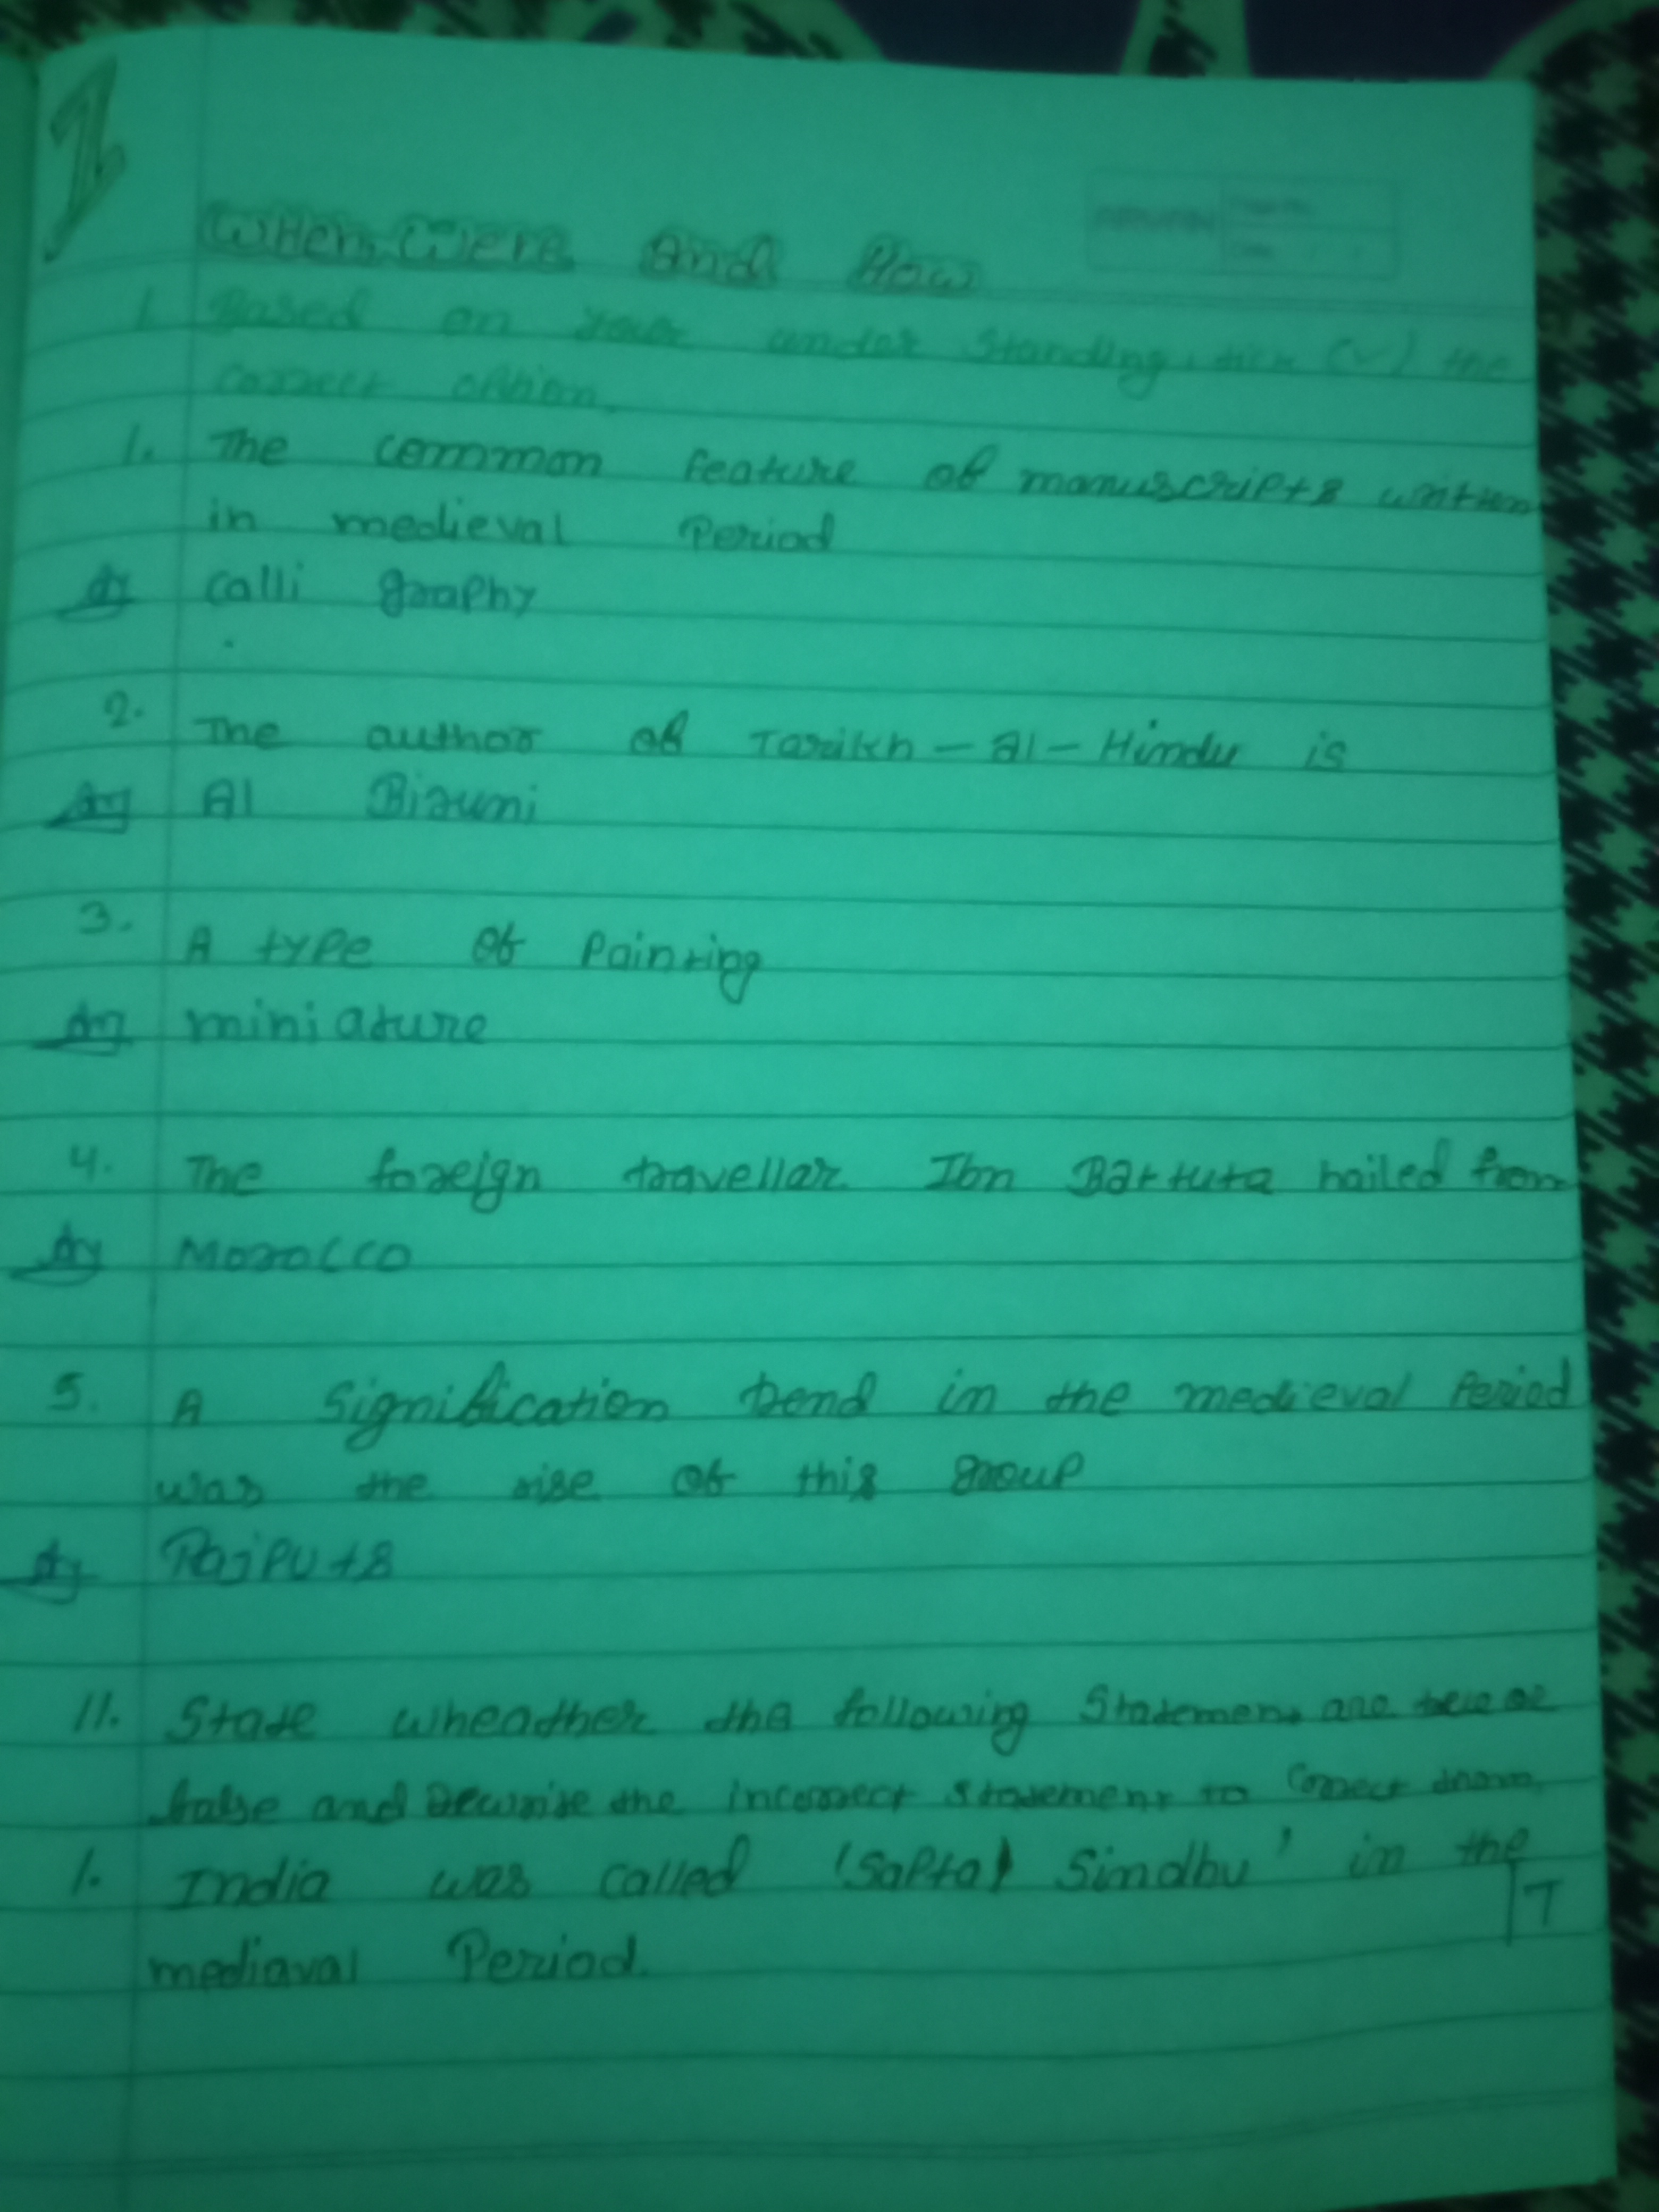 1
When, Were And How
1. Based on your under standing, tick (✓) the
correct option.
1. The common feature of manuscripts written
in medieval Period
Ans calli graphy
2. The author of Tarikh - Al - Hindu is
Ans Al Biruni
3. A type of Painting
Ans miniature
4. The foreign travellar Ibn Battuta hailed from
Ans Morocco
5. A Signification trend in the medieval Period
was the rise of this group
Ans Rajputs
11. State wheather the following Statement are true or
false and Rewrite the incorrect statement to correct
1. India was called 'Sapta) Sindhu' in the
mediaval Period. T